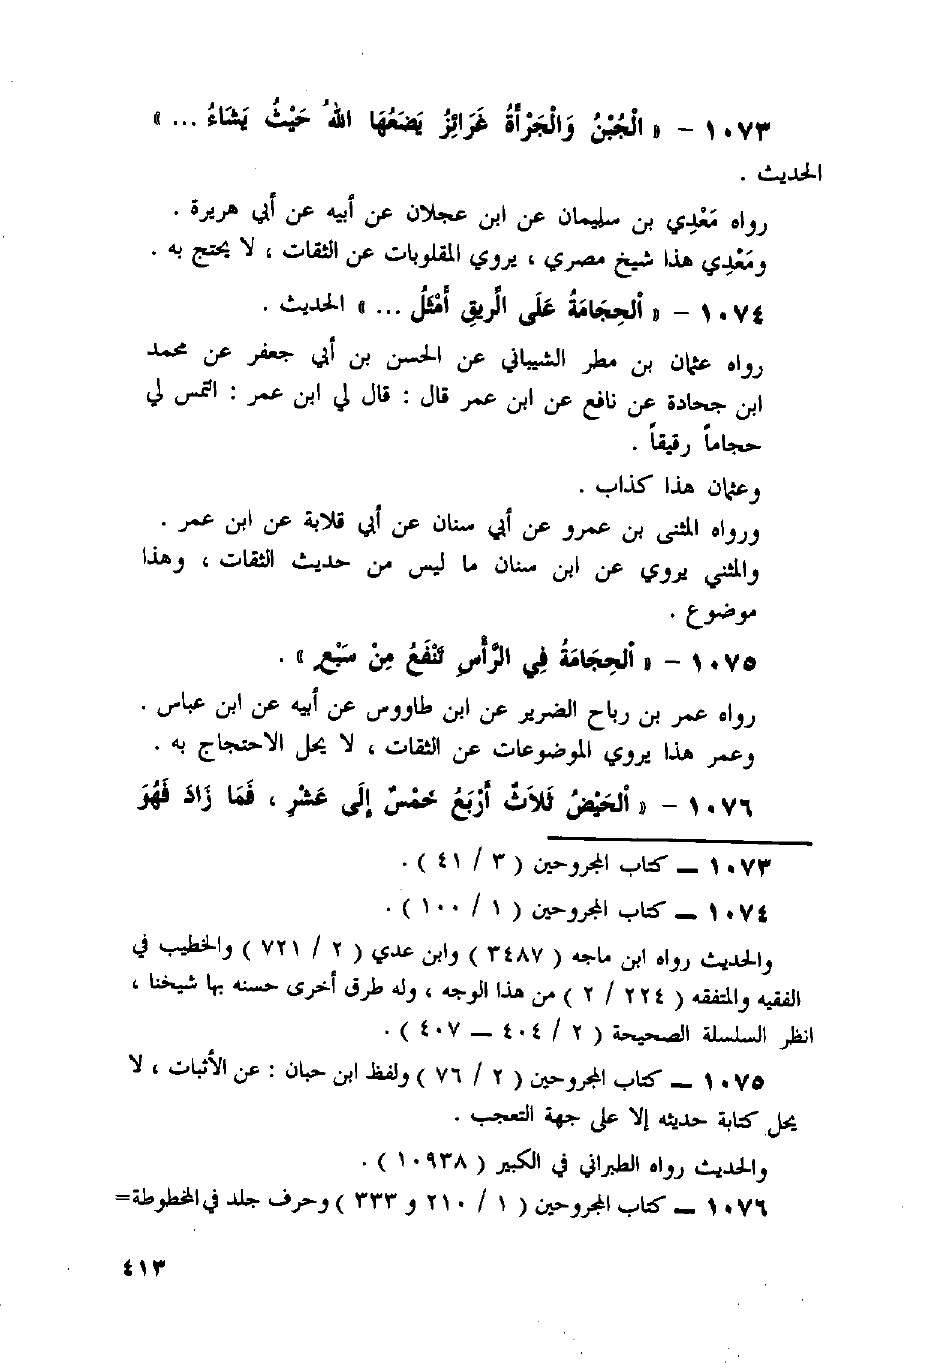 ١٠٧٣ - « الْجُبْنُ وَالْجَرْأَةُ غَرَائِزُ يَضَعُهَا اللهُ حَيْثُ يَشَاءُ ... »
الحديث .
رواه مَعْدِي بن سليمان عن ابن عجلان عن أبيه عن أبي هريرة .
ومَعْدِي هذا شيخ مصري ، يروي المقلوبات عن الثقات ، لا يحتج به .
١٠٧٤ - « اَلحِجَامَةُ عَلَى الرِّيقِ أَمْثَلُ ... » الحديث .
رواه عثمان بن مطر الشيباني عن الحسن بن أبي جعفر عن محمد
ابن جحادة عن نافع عن ابن عمر قال : قال لي ابن عمر : التمس لي
حجاماً رقيقاً .
وعثمان هذا كذاب .
ورواه المثنى بن عمرو عن أبي سنان عن أبي قلابة عن ابن عمر .
والمثني يروي عن ابن سنان ما ليس من حديث الثقات ، وهذا
موضوع .
١٠٧٥ - « اَلحِجَامَةُ فِي الرَّأْسِ تَنْفَعُ مِنْ سَبْعٍ » .
رواه عمر بن رباح الضرير عن ابن طاووس عن أبيه عن ابن عباس .
وعمر هذا يروي الموضوعات عن الثقات ، لا يحل الاحتجاج به .
١٠٧٦ - « اَلحَيْضُ ثَلاَثٌ أَرْبَعُ خَمْسٌ إِلَى عَشْرٍ ، فَمَا زَادَ فَهُوَ
١٠٧٣ ــ كتاب المجروحين ( ٣ / ٤١ ) .
١٠٧٤ ــ كتاب المجروحين ( ١ / ١٠٠ ) .
والحديث رواه ابن ماجه ( ٣٤٨٧ ) وابن عدي ( ٢ / ٧٢١ ) والخطيب في
الفقيه والمتفقه ( ٢٢٤ / ٢ ) من هذا الوجه ، وله طرق أخرى حسنه بها شيخنا ،
انظر السلسلة الصحيحة ( ٢ / ٤٠٤ ــ ٤٠٧ ) .
١٠٧٥ ــ كتاب المجروحين ( ٢ / ٧٦ ) ولفظ ابن حبان : عن الأثبات ، لا
يحل كتابة حديثه إلا على جهة التعجب .
والحديث رواه الطبراني في الكبير ( ١٠٩٣٨ ) .
١٠٧٦ ــ كتاب المجروحين ( ١ / ٢١٠ و ٣٣٣ ) وحرف جلد في المخطوطة=
٤١٣